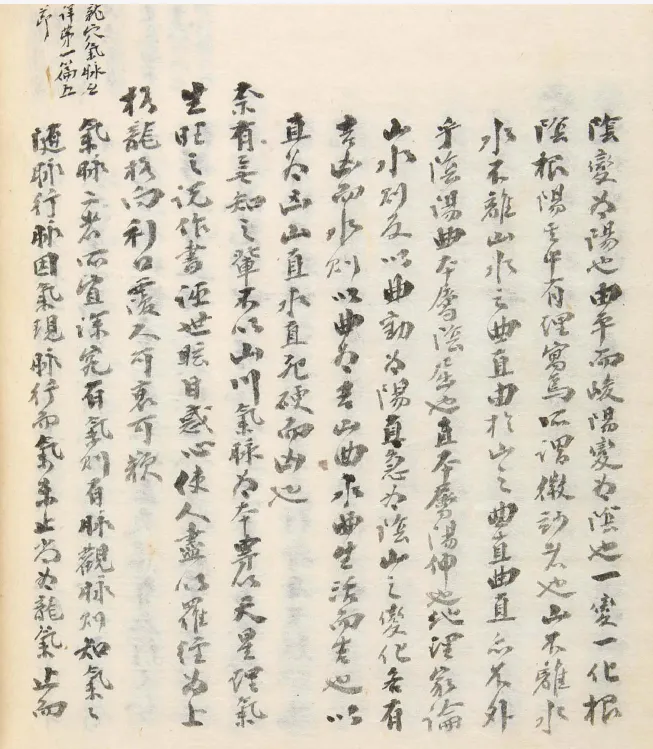 龍穴氣脉之
詳第一篇五
節
陰變為陽也由平而峻陽變為陰也一變一化根
陰根陽其中有理寓焉所謂微妙者也山不離水
水不離山水之曲直由於山之曲直曲直亦不外
乎陰陽曲本屬陰屈也直本屬陽伸也地理家論
山水則反以曲動為陽直急為陰山之變化各有
吉凶而水則以曲為吉山曲水曲生活而吉也以
直為凶山直水直死硬而凶也
奈有無知之輩不以山川氣脉為本專以天星理氣
生旺之說作書誣世眩目惑心使人盡以羅經為上
格龍格向利口覆人可哀可歎
氣脉二者所宜深究有氣則有脉觀脉則知氣氣
隨脉行脉因氣現脉行而氣未止尚為龍氣止而